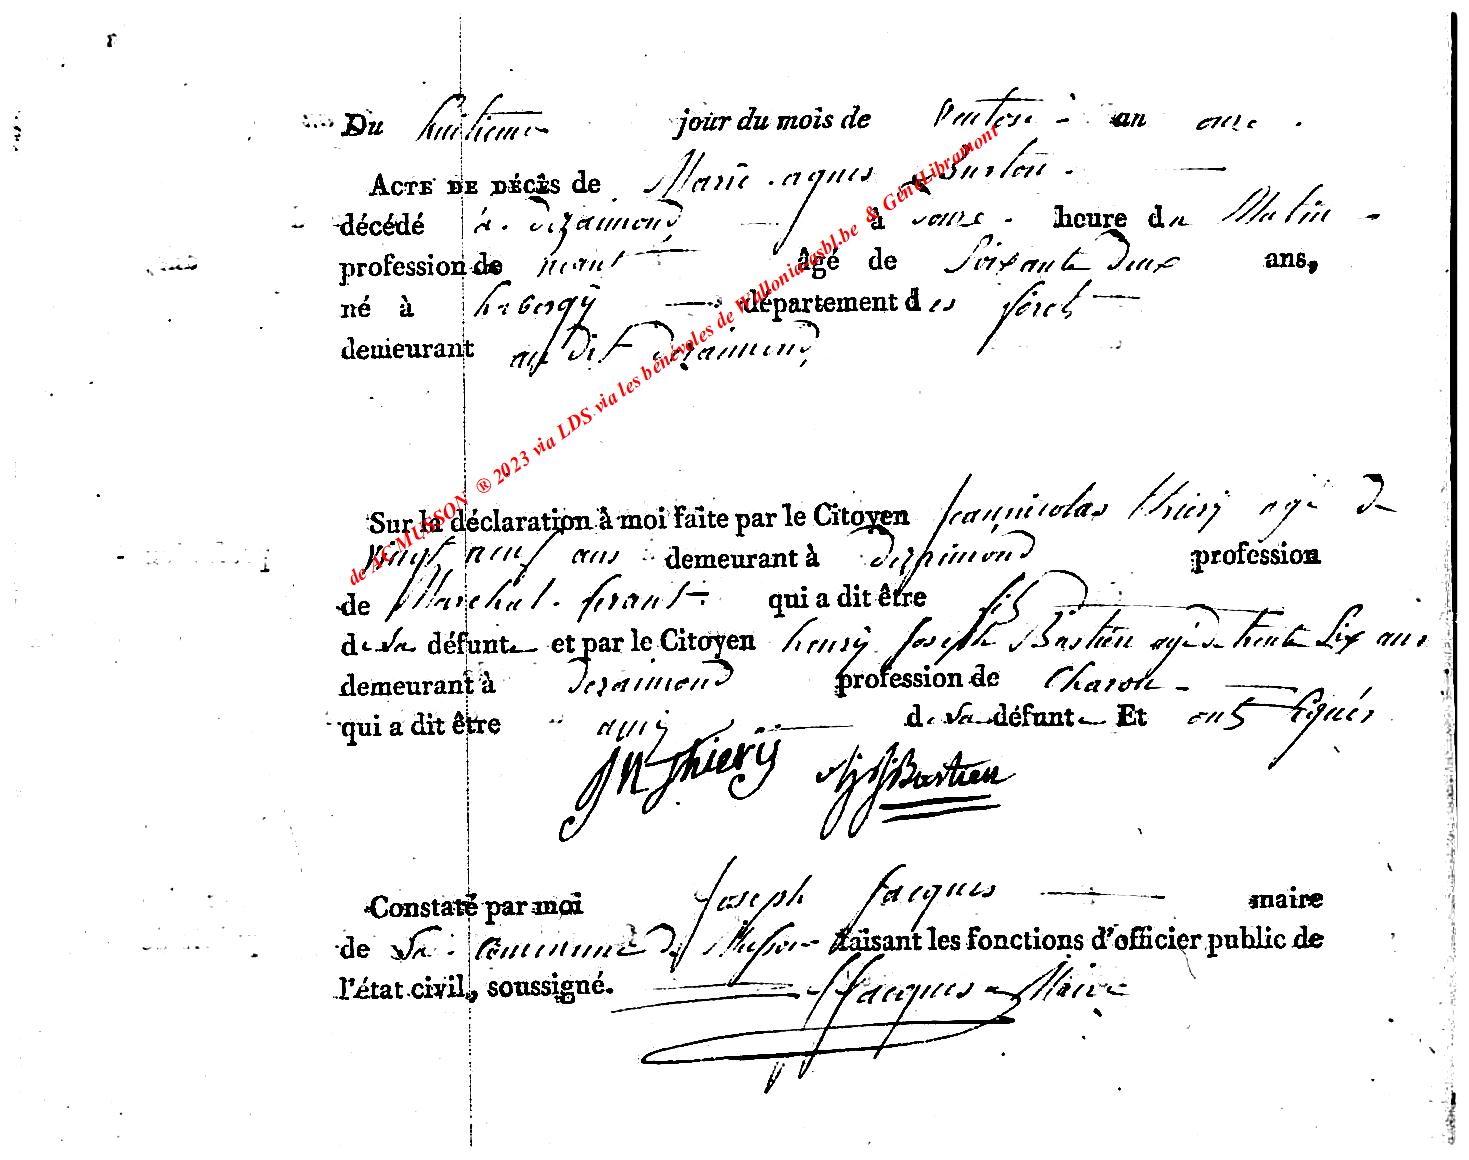 Du huitieme jour du mois de Ventose an onze.
ACTE DE DÉCÈS de Marie agnes Burton.
décédé à dezaimond à onze heure du Matin
profession de neant âgé de Soixante deux ans,
né à habergÿ département des foret
demeurant au dit dezaimond
Sur la déclaration à moi faite par le Citoyen jean nicolas thierÿ agé de
vingt neuf ans demeurant à dezaimond profession
de Marchal ferant qui a dit être fils
de la défunte et par le Citoyen henrÿ joseph Bastien agé de trente Six ans
demeurant à dezaimond profession de Charon
qui a dit être amÿ de la défunte Et ont Signés
JN Thierÿ HJ Bastien
Constaté par moi joseph jacques maire
de la Commune de Musson faisant les fonctions d'officier public de
l'état civil, soussigné. J Jacques Maire
de AC MUSSON ® 2023 via LDS via les bénévoles de Wallonia asbl.be & GénéLibramont